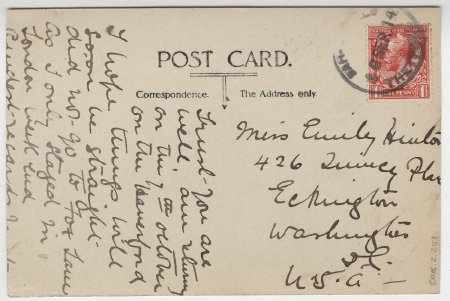 POST CARD.
Correspondence.
The Address only.
Trust you are
well, am
on the 7th October
on the Haverford
I hope things will
soon be straight
did not go to Fox Lane
as I only stayed in
London
Miss Emily Hinton
426 Quincy
Eckington
Washington
D.C.
U.S.A
ONE PENNY